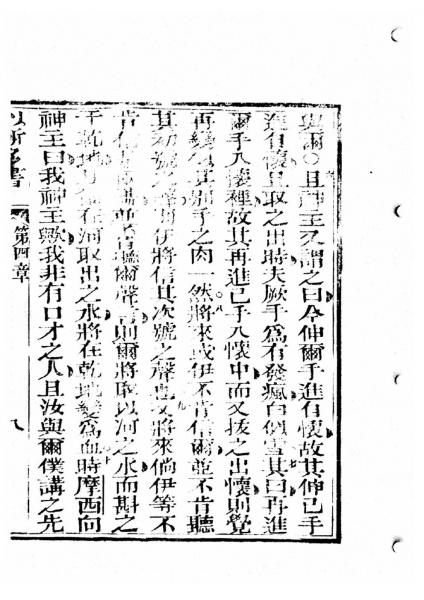 與爾○且神主又謂之曰今伸爾手進有懷故其伸已手
進有懷且取之出時夫厥手為有發瘋白似雪其曰再進
爾手入懷裡故其再進已手入懷中而又拔之出懷則覺
再變似其別手之肉一然將來或伊不肯信爾並不肯聽
其初號之聲則伊將信其次號之聲也又將來倘伊等不
肯信 並 肯聽爾聲言則爾將取以河之水而斟之
于乾地 在河取出之水將在乾地變為血時摩西向
神主曰我神主歟我非有口才之人且汝與爾僕講之先
第四章
八